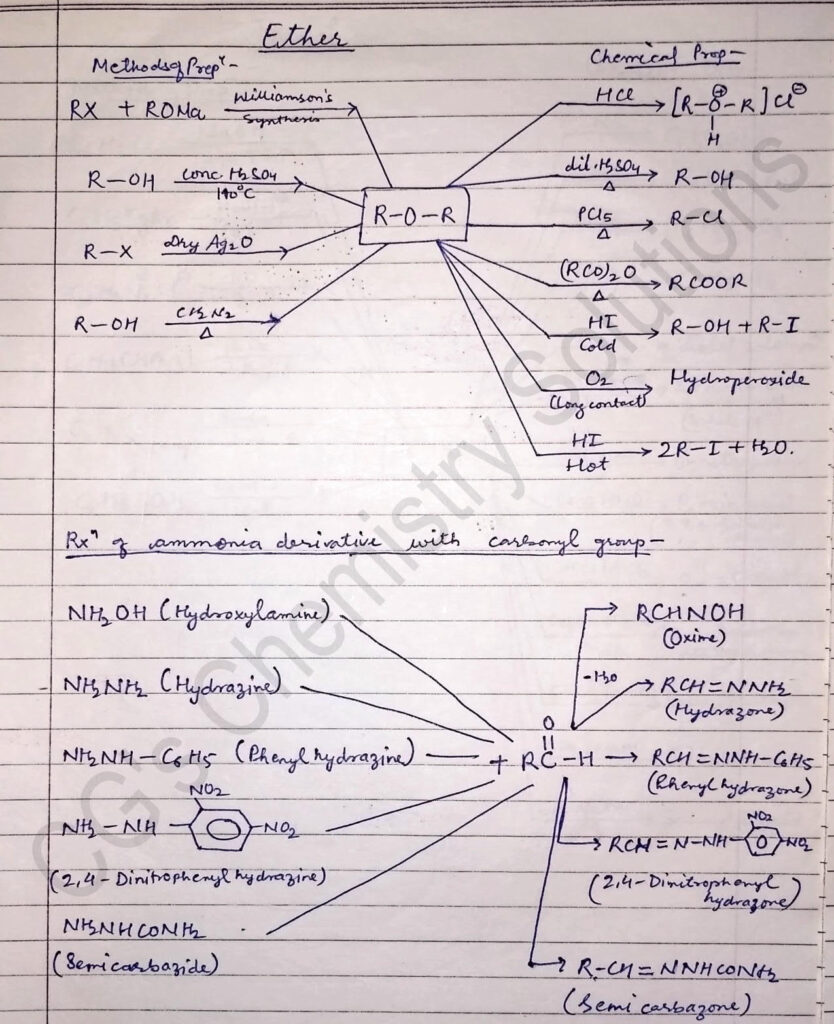 Ether
Methods of Prepⁿ-
Chemical Prop-
RX + RONa Williamson's Synthesis
R-OH conc. H₂SO₄ 140°C
R-X Dry Ag₂O
R-OH CH₂N₂ Δ
R-O-R
HCl [R-O-R]Cl⊖
⊕
H
dil. H₂SO₄ Δ R-OH
PCl₅ Δ R-Cl
(RCO)₂O Δ RCOOR
HI Cold R-OH + R-I
O₂ (Long contact) Hydroperoxide
HI Hot 2R-I + H₂O.
Rxⁿ of ammonia derivative with carbonyl group-
NH₂OH (Hydroxylamine)
NH₂NH₂ (Hydrazine)
NH₂NH-C₆H₅ (Phenyl hydrazine)
NO₂
NH₂-NH NO₂
(2,4-Dinitrophenyl hydrazine)
NH₂NHCONH₂
(Semicarbazide)
O
+ RC-H
-H₂O
RCHNOH
(Oxime)
RCH=NNH₂
(Hydrazone)
RCH=NNH-C₆H₅
(Phenyl hydrazone)
NO₂
RCH=N-NH NO₂
(2,4-Dinitrophenyl
hydrazone)
R-CH=NNHCONH₂
(Semi carbazone)
CG's Chemistry Solutions